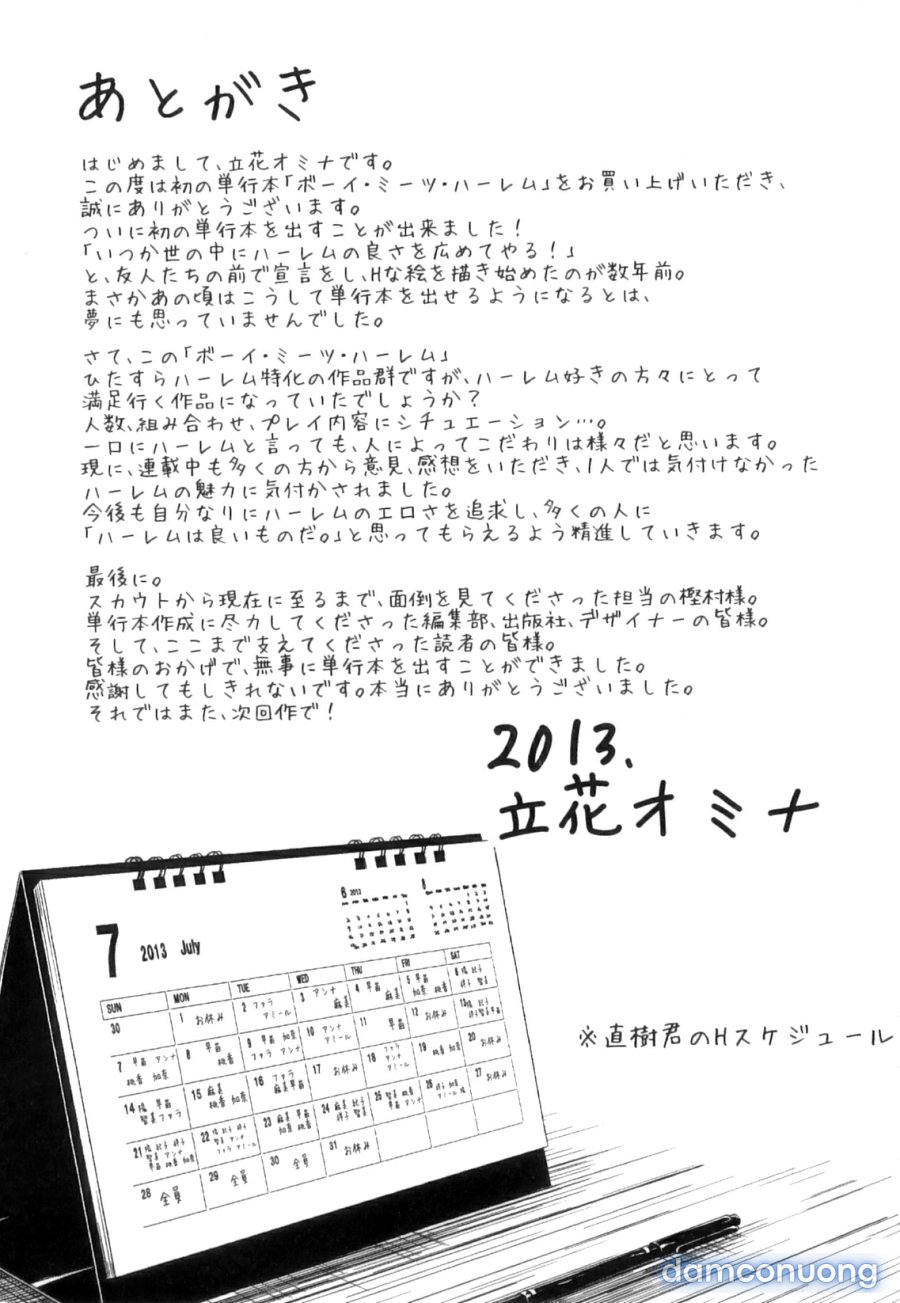 あとがき
はじめまして、立花オミナです。
この度は初の単行本「ボーイ・ミーツ・ハーレム」をお買い上げいただき、
誠にありがとうございます。
ついに初の単行本を出すことが出来ました!
「いつか世の中にハーレムの良さを広めてやる!」
と、友人たちの前で宣言をし、Hな絵を描き始めたのが数年前。
まさかあの頃はこうして単行本を出せるようになるとは、
夢にも思っていませんでした。
さて、この「ボーイ・ミーツ・ハーレム」
ひたすらハーレム特化の作品群ですが、ハーレム好きの方々にとって
満足行く作品になっていたでしょうか?
人数、組み合わせ、プレイ内容にシチュエーション…。
一口にハーレムと言っても、人によってこだわりは様々だと思います。
現に、連載中も多くの方から意見、感想をいただき、1人では気付けなかった
ハーレムの魅力に気付かされました。
今後も自分なりにハーレムのエロさを追求し、多くの人に
「ハーレムは良いものだ。」と思ってもらえるよう精進していきます。
最後に。
スカウトから現在に至るまで、面倒を見てくださった担当の樫村様。
単行本作成に尽力してくださった編集部、出版社、デザイナーの皆様。
そして、ここまで支えてくださった読者の皆様。
皆様のおかげで、無事に単行本を出すことができました。
感謝してもしきれないです。本当にありがとうございました。
それではまた、次回作で!
2013.
立花オミナ
6 2013
8
7 2013 July
SUN MON TUE WED THU FRI SAT
30 1 お休み 2 ファラ アミール 3 アンナ 麻美 4 早苗 麻美 5 早苗 加奈 桃香 6
7 早苗 アンナ 桃香 加奈 8 早苗 桃香 9 早苗 加奈 ファラ アンナ 10 アンナ アミール 11 早苗 12 お休み 13
14 ファラ 15 麻美 桃香 加奈 16 ファラ 麻美 早苗 17 お休み 18 ファラ アンナ アミール 19 桃香 加奈 20 お休み
21 22 23 麻美 早苗 加奈 桃香 24 25 26 27 お休み
28 全員 29 全員 30 全員 31 お休み
※直樹君のHスケジュール
damconuong